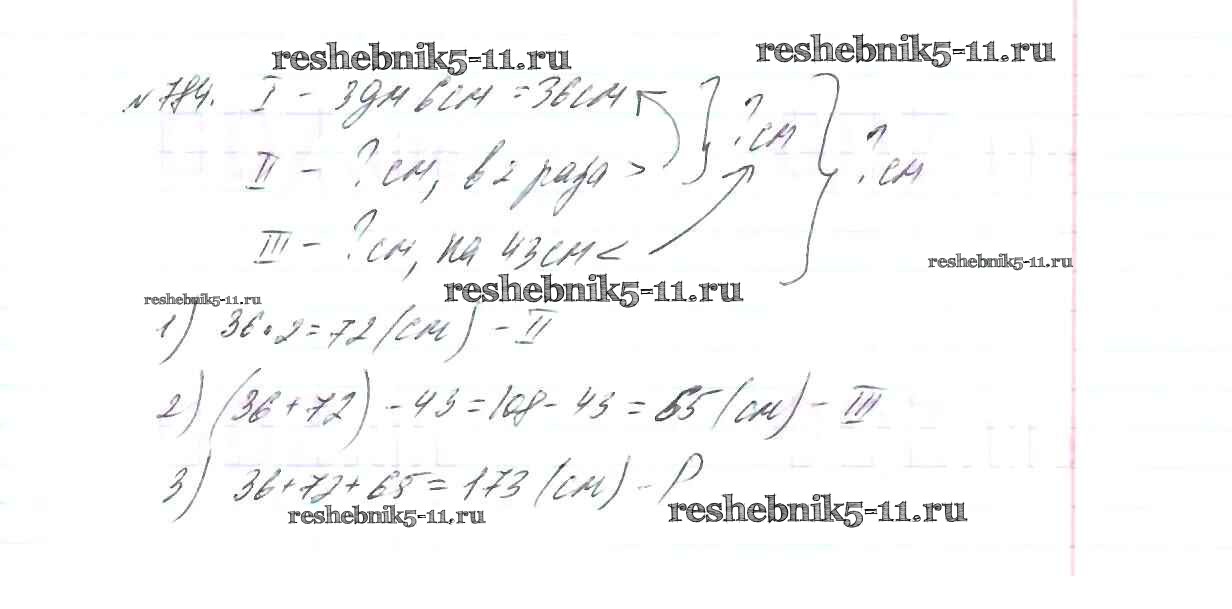 reshebnik5-11.ru reshebnik5-11.ru
№784. I - 3дм 6см = 36см } ?см } ?см
II - ?см, в 2 раза >
III - ?см, на 43см <
reshebnik5-11.ru
reshebnik5-11.ru reshebnik5-11.ru
1) 36·2=72(см) - II
2) (36+72) - 43 = 108 - 43 = 65 (см) - III
3) 36+72+65 = 173 (см) - P
reshebnik5-11.ru reshebnik5-11.ru